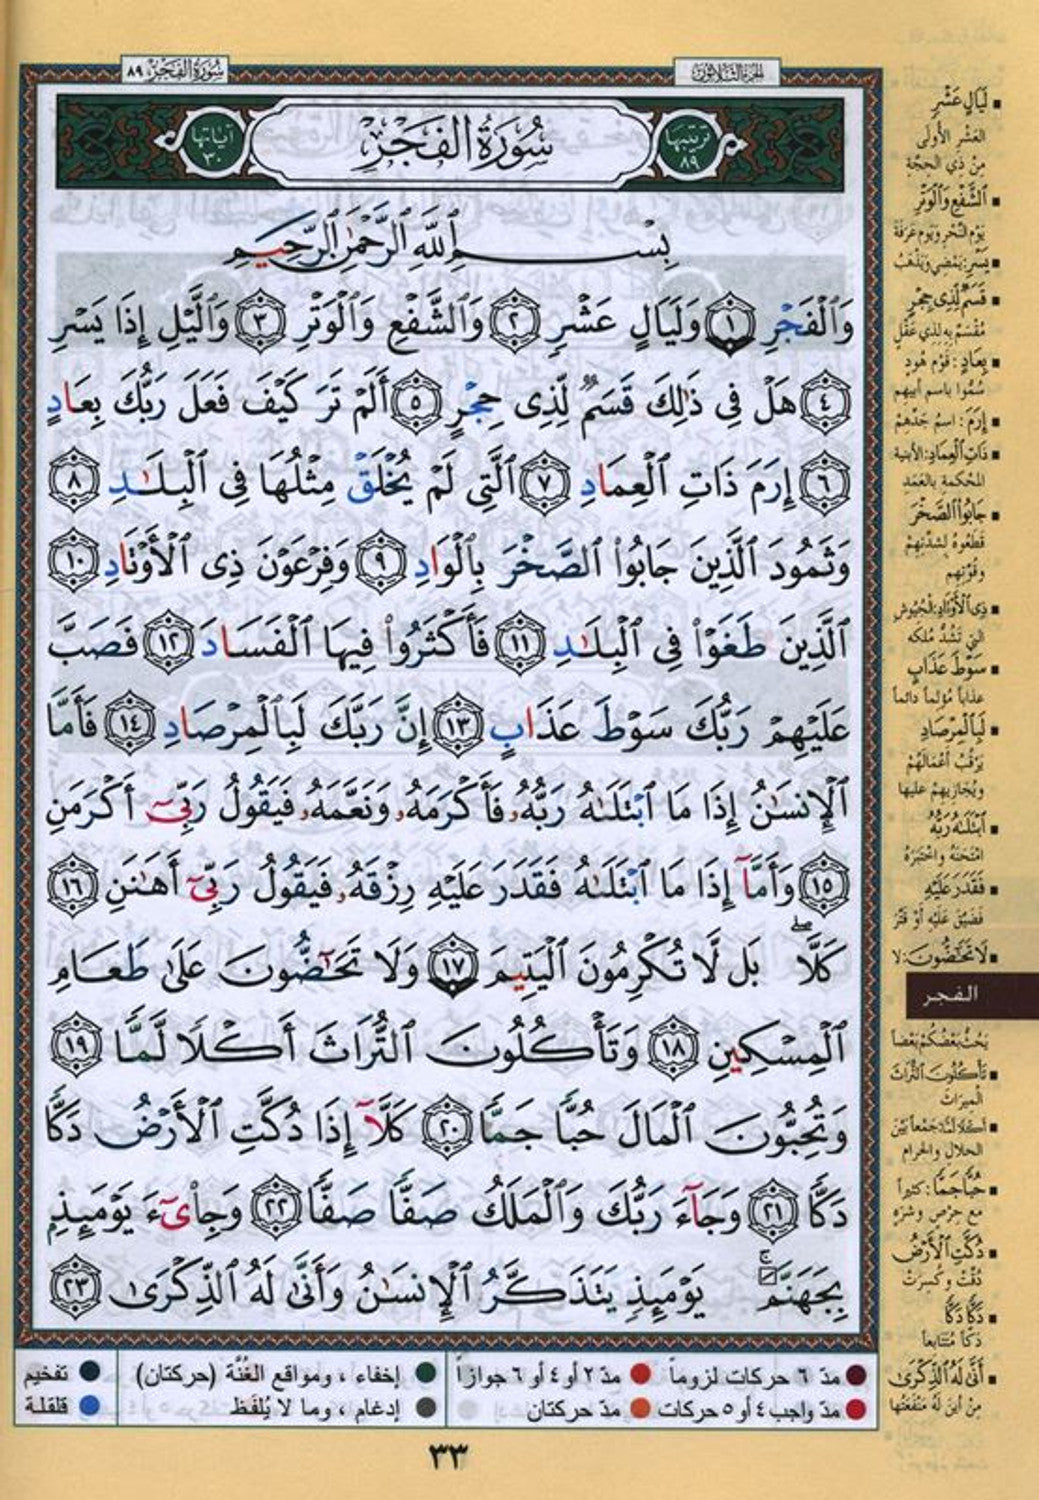 الجزء الثلاثون
سُورَةُ الفَجْرِ ٨٩
ترتيبها
٨٩
سُورَةُ الْفَجْرِ
آياتها
٣٠
بِسْمِ ٱللَّهِ ٱلرَّحْمَٰنِ ٱلرَّحِيمِ
وَٱلْفَجْرِ ١ وَلَيَالٍ عَشْرٍ ٢ وَٱلشَّفْعِ وَٱلْوَتْرِ ٣ وَٱلَّيْلِ إِذَا يَسْرِ
٤ هَلْ فِى ذَٰلِكَ قَسَمٌ لِّذِى حِجْرٍ ٥ أَلَمْ تَرَ كَيْفَ فَعَلَ رَبُّكَ بِعَادٍ
٦ إِرَمَ ذَاتِ ٱلْعِمَادِ ٧ ٱلَّتِى لَمْ يُخْلَقْ مِثْلُهَا فِى ٱلْبِلَٰدِ ٨
وَثَمُودَ ٱلَّذِينَ جَابُوا۟ ٱلصَّخْرَ بِٱلْوَادِ ٩ وَفِرْعَوْنَ ذِى ٱلْأَوْتَادِ ١٠
ٱلَّذِينَ طَغَوْا۟ فِى ٱلْبِلَٰدِ ١١ فَأَكْثَرُوا۟ فِيهَا ٱلْفَسَادَ ١٢ فَصَبَّ
عَلَيْهِمْ رَبُّكَ سَوْطَ عَذَابٍ ١٣ إِنَّ رَبَّكَ لَبِٱلْمِرْصَادِ ١٤ فَأَمَّا
ٱلْإِنسَٰنُ إِذَا مَا ٱبْتَلَىٰهُ رَبُّهُۥ فَأَكْرَمَهُۥ وَنَعَّمَهُۥ فَيَقُولُ رَبِّىٓ أَكْرَمَنِ
١٥ وَأَمَّآ إِذَا مَا ٱبْتَلَىٰهُ فَقَدَرَ عَلَيْهِ رِزْقَهُۥ فَيَقُولُ رَبِّىٓ أَهَٰنَنِ ١٦
كَلَّا ۖ بَل لَّا تُكْرِمُونَ ٱلْيَتِيمَ ١٧ وَلَا تَحَٰٓضُّونَ عَلَىٰ طَعَامِ
ٱلْمِسْكِينِ ١٨ وَتَأْكُلُونَ ٱلتُّرَاثَ أَكْلًا لَّمًّا ١٩
وَتُحِبُّونَ ٱلْمَالَ حُبًّا جَمًّا ٢٠ كَلَّآ إِذَا دُكَّتِ ٱلْأَرْضُ دَكًّا
دَكًّا ٢١ وَجَآءَ رَبُّكَ وَٱلْمَلَكُ صَفًّا صَفًّا ٢٢ وَجِا۟ىٓءَ يَوْمَئِذٍۭ
بِجَهَنَّمَ ۚ يَوْمَئِذٍ يَتَذَكَّرُ ٱلْإِنسَٰنُ وَأَنَّىٰ لَهُ ٱلذِّكْرَىٰ ٢٣
لَيَالٍ عَشْرٍ
العَشْرِ الأُولَى
مِنْ ذِي الحِجَّةِ
ٱلشَّفْعِ وَٱلْوَتْرِ
يَوْمِ النَّحْرِ وَيَوْمِ عَرَفَةَ
يَسْرِ: يَمْضِي وَيَذْهَبُ
قَسَمٌ لِّذِى حِجْرٍ
مُقْسَمٌ بِهِ لِذِي عَقْلٍ
بِعَادٍ: قَوْمِ هُودٍ
سُمُّوا باسمِ أبيهم
إِرَمَ: اسمُ جَدِّهِمْ
ذَاتِ ٱلْعِمَادِ: الأبنيةِ
المُحْكَمةِ بالعَمَدِ
جَابُوا۟ ٱلصَّخْرَ
قَطَعُوهُ لِشِدَّتِهِمْ
وقُوَّتِهِم
ذِى ٱلْأَوْتَادِ: الجُيُوشِ
التي تَشُدُّ مُلْكَه
سَوْطَ عَذَابٍ
عذاباً مُؤلِماً دائماً
لَبِٱلْمِرْصَادِ
يَرْقُبُ أَعْمَالَهُمْ
ويُجَازِيهِمْ عليها
ٱبْتَلَىٰهُ رَبُّهُ
امْتَحَنَهُ واخْتَبَرَهُ
فَقَدَرَ عَلَيْهِ
فَضَيَّقَ عَلَيْهِ أَوْ قَتَّرَ
لَا تَحَٰضُّونَ: لا
الفجر
يَحُثُّ بَعْضُكُمْ بَعْضاً
تَأْكُلُونَ ٱلتُّرَاثَ
المِيرَاثَ
أَكْلًا لَّمًّا: جَمْعاً بَيْنَ
الحلالِ والحرامِ
حُبًّا جَمًّا: كثيراً
مع حِرْصٍ وشَرَهٍ
دُكَّتِ ٱلْأَرْضُ
دُقَّتْ وكُسِرَتْ
دَكًّا دَكًّا
دَكّاً مُتَتَابِعاً
أَنَّىٰ لَهُ ٱلذِّكْرَىٰ
مِنْ أينَ لَهُ مَنْفَعَتُها
مدّ ٦ حركات لزوماً
مدّ ٢ أو ٤ أو ٦ جوازاً
إخفاء، ومواقع الغُنَّة (حركتان)
تفخيم
مدّ واجب ٤ أو ٥ حركات
مدّ حركتان
إدغام، وما لا يُلفَظ
قلقلة
٣٣